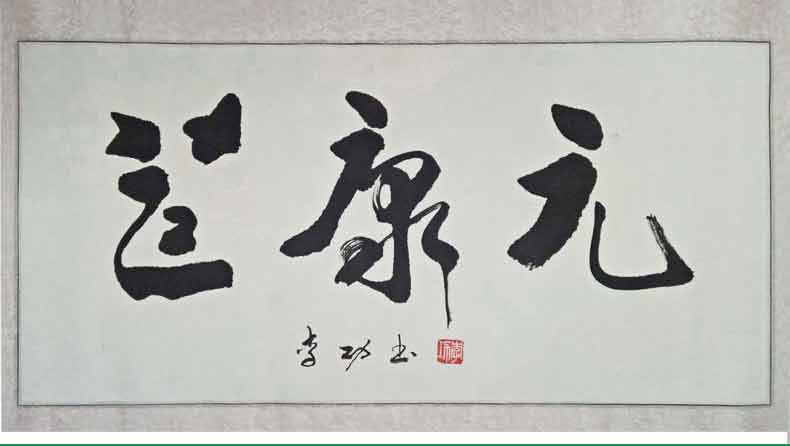 元康道
李功书